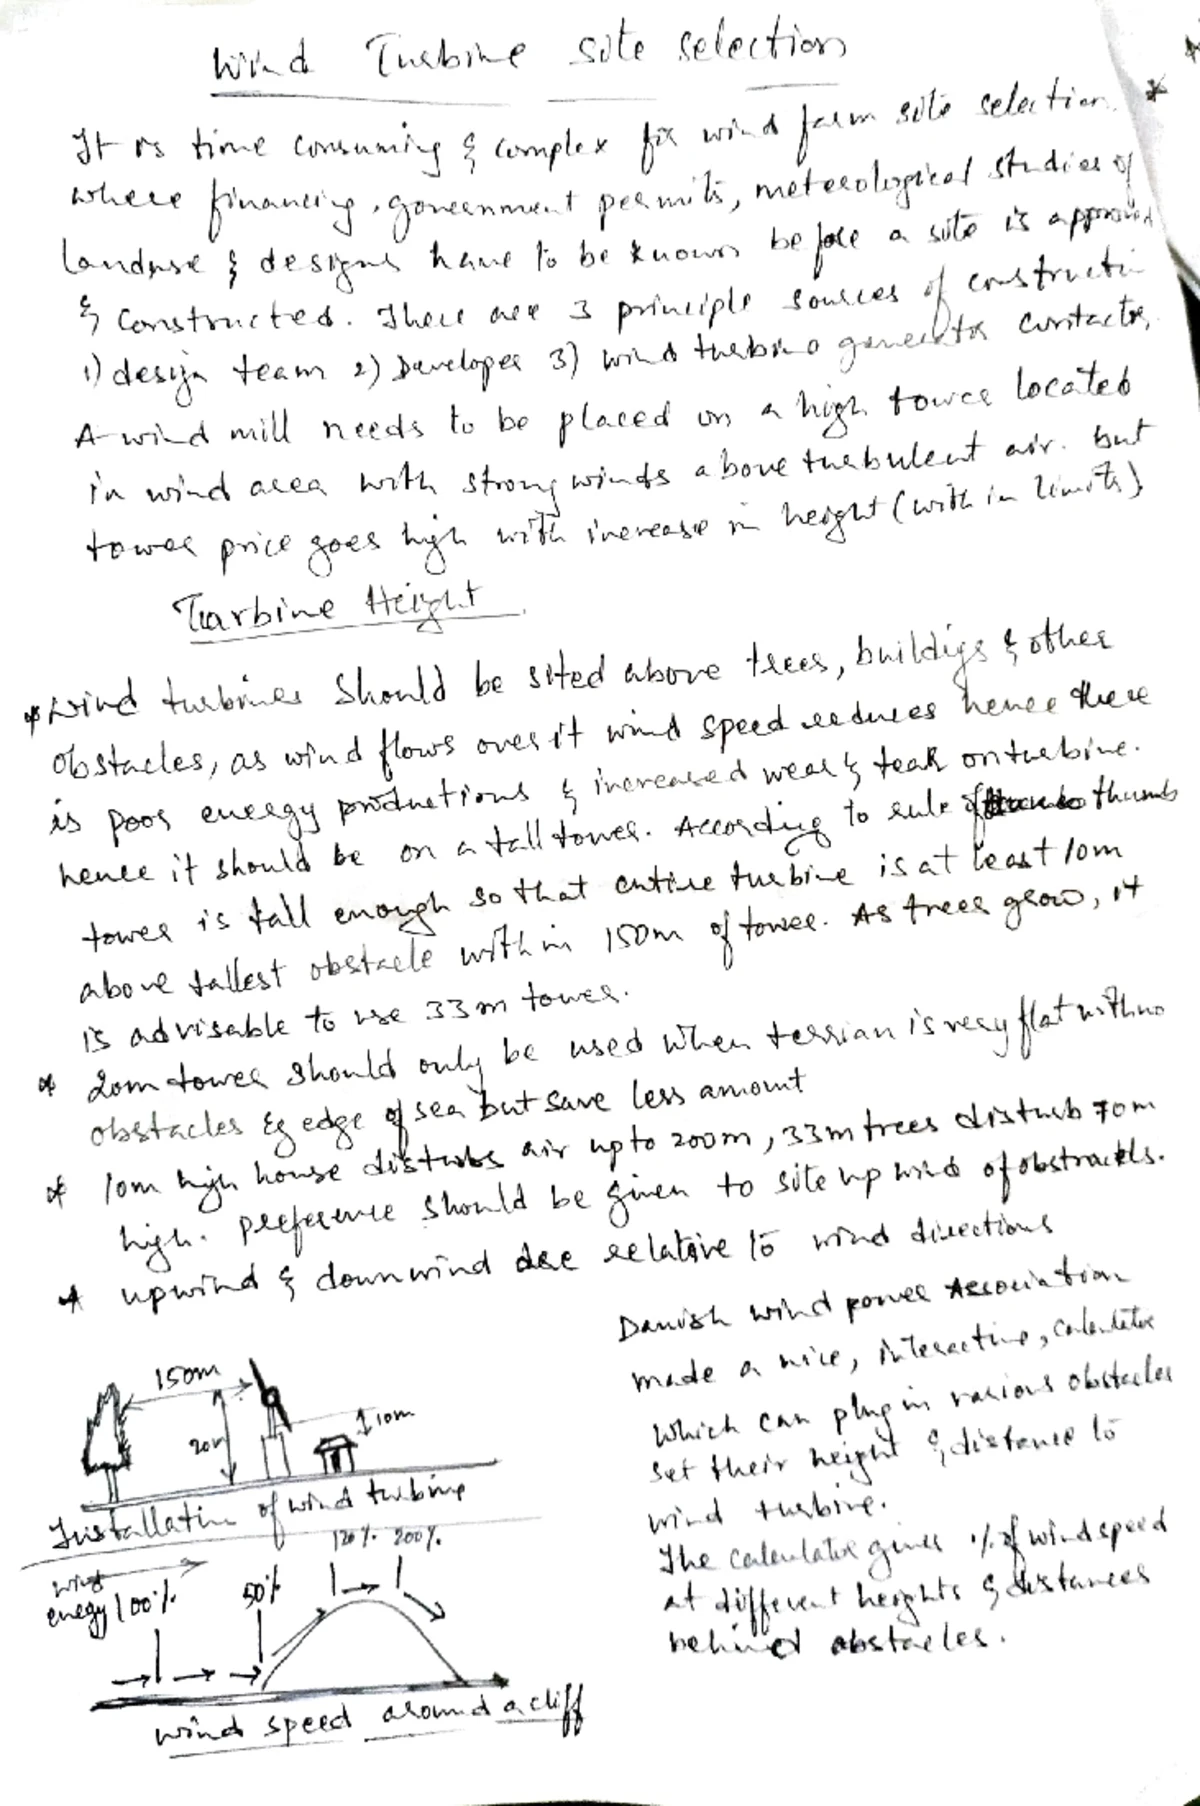 Wind Turbine site selection
It is time consuming & complex for wind farm site selection.
where financing, government permits, meterological studies of
Landuse & designs have to be known before a site is approved
& constructed. There are 3 principle sources of constructi
1) design team 2) Developer 3) wind turbine generator contactor,
A wind mill needs to be placed on a high tower located
in wind area with strong winds above turbulent air. but
tower price goes high with increase in height (with in limits)
Turbine Height
* Wind turbines should be sited above trees, buildigs & other
obstacles, as wind flows over it wind speed reduces hence there
is poor energy productions & increased wear & tear on turbine.
hence it should be on a tall tower. According to rule of thumb
tower is tall enough so that entire turbine is at least 10m
above tallest obstacle with in 150m of tower. As trees grow, it
is advisable to use 33m tower.
* 20m tower should only be used when terrian is very flat with no
obstacles Eg edge of sea but save less amount
* 10m high house disturbs air upto 200m, 33m trees disturb 70m
high. preference should be given to site up wind of obstrackls.
* upwind & downwind are relative to wind directions
Danish wind power Association
made a nice, interactive, calculator
which can plug in various obstacles
set their height & distance to
wind turbine.
The calculator gives % of wind speed
at different heights & distances
behind obstacles.
150m
20m
10m
Installation of wind turbine
wind
enegy 100%
50%
120% 200%
wind speed around a cliff